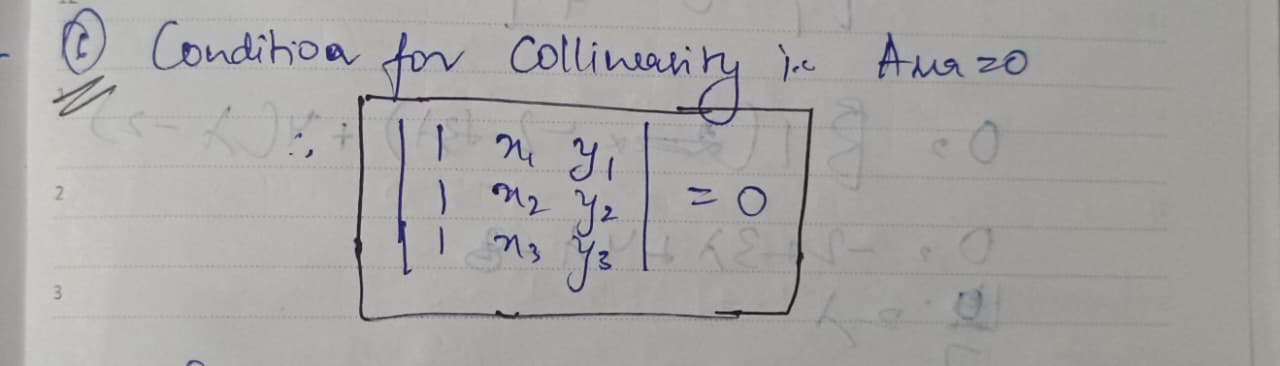 (c) Condition for Collinearity i.e Area = 0
∴ | 1 x₁ y₁ |
| 1 x₂ y₂ | = 0
2
| 1 x₃ y₃ |
3